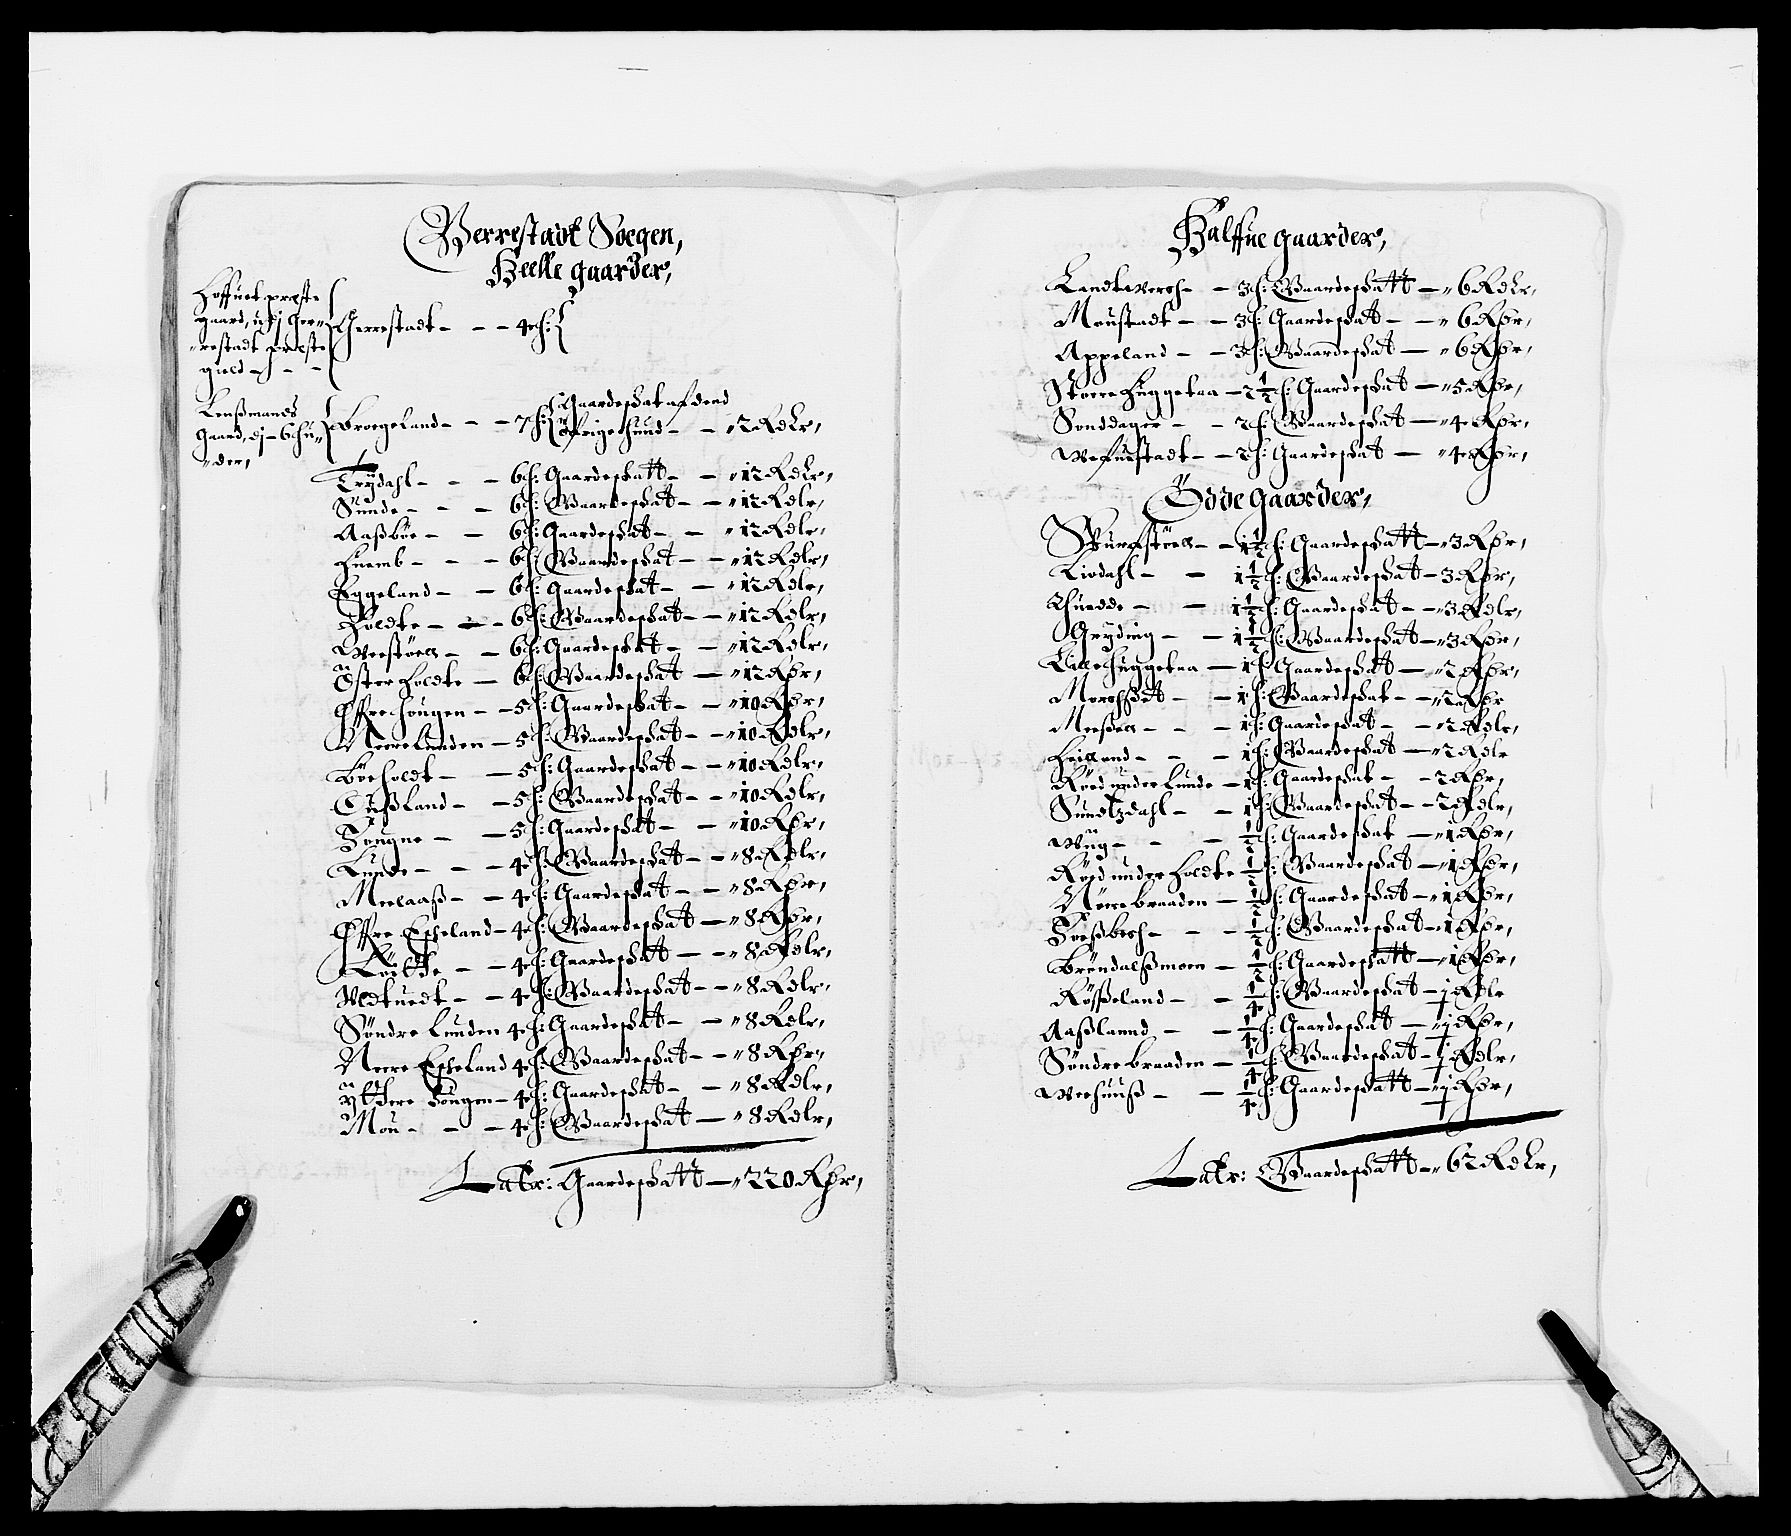 Gerrestadt Sogen,
Heelle gaarder,
Hoffuet præste
gaard, udj Ger-
restadt præste
gield -
Gerrestadt - - - 4 h:
Lenßmands
gaard, dj - 6 hu-
der,
Brogeland - - - 7 h: Gaardeskat af dend
öfrige hund - - 2 Rdlr,
Trÿdahl - - - 6 h: Gaardeskatt - - 12 Rdlr,
Sunde - - - 6 h: Gaardeskat - - 12 Rdlr,
Aaßböe - - 6 h: Gaardeskat - - 12 Rdlr,
Huemb - - - 6 h: Gaardeskat - - 12 Rdlr,
Eggeland - - 6 h: Gaardeskat - - 12 Rdlr,
Holdte - - 6 h: Gaardeskat - - 12 Rdlr,
Meestöell - - 6 h: Gaardeskat - - 12 Rdlr,
Öster Holdte - 6 h: Gaardeskat - - 12 Rdr,
Öffre Hougen - - 5 h: Gaardeskat - - 10 Rdr,
Neere Lunden - 5 h: Gaardeskat - - 10 Rdlr,
Böeholdt - - 5 h: Gaardeskat - - 10 Rdlr,
Ousland - - 5 h: Gaardeskat - - 10 Rdlr,
Sougne - - 5 h: Gaardeskat - - 10 Rdr,
Lunde - - - 4 h: Gaardeskat - - 8 Rdlr,
Meelaaß - - 4 h: Gaardeskat - - 8 Rdr,
Öffre Escheland - 4 h: Gaardeskatt - 8 Rdr,
Röette - - 4 h: Gaardeskatt - 8 Rdlr,
Uldtuedt - - 4 h: Gaardeskat - - 8 Rdlr,
Söndre Lunden 4 h: Gaardeskat - - 8 Rdlr,
Neere Escheland 4 h: Gaardeskat - - 8 Rdr,
ÿttere Hougen - 4 h: Gaardeskat - - 8 Rdlr,
Mou - - - 4 h: Gaardeskat - - 8 Rdlr,
Latr: Gaardeskatt - 220 Rdr,
Halffue gaarder,
Landtuergh - - 3 h: Gaardeskatt - 6 Rdlr,
Moustadt - - 3 h: Gaardeskat - - 6 Rdr,
Appeland - - 3 h: Gaardeskat - 6 Rdr,
Stoere Huggetaa - 2 1/2 h: Gaardeskat - 5 Rdr,
Sonddager - - 2 h: Gaardeskat - 4 Rdr,
Wefuestadt - - 2 h: Gaardeskat - 4 Rdr,
Ödde gaarder,
Spurestöell - - 1 1/2 h: Gaardeskatt - 3 Rdr,
Livdahl - - 1 1/2 h: Gaardeskat - 3 Rdr,
Thuedde - - 1 1/2 h: Gaardeskat - - 3 Rdlr,
Grÿding - - 1 1/2 h: Gaardeskat - 3 Rdr,
Lille Huggetaa - 1 h: Gaardeskat - 2 Rdr,
Morchhatt - - 1 h: Gaardeskat - 2 Rdr
Meeßell - - - 1 h: Gaardeskat - - 2 Rdlr,
Heilland - - - 1 h: Gaardeskat - 2 Rdlr
Röed under Lunde - 1 h: Gaardeskat - - 2 Rdr,
Sundtzdahl - - 1 h: Gaardeskat - - 2 Rdlr,
Wÿg - - - 1/2 h: Gaardeskat - 1 Rdr,
Röed under Holdte 1/2 h: Gaardeskat - 1 Rdr,
Neere Braaden - 1/2 h: Gaardeskat - 1 Rdr,
Soeßbergh - - - 1/2 h: Gaardeskat - 1 Rdr,
Bröndalßmoen - 1/2 h: Gaardeskatt - 1 Rdr,
Rößeland - - 1/4 h: Gaardeskat - 1/2 Rdlr
Aaßlannd - - 1/4 h: Gaardeskat - 1/2 Rdr,
Söndre Braaden - 1/4 h: Gaardeskat - 1/2 Rdlr,
Weehuuß - - 1/4 h: Gaardeskatt - 1/2 Rdr,
Latr: Gaardeskatt - 62 Rdlr,